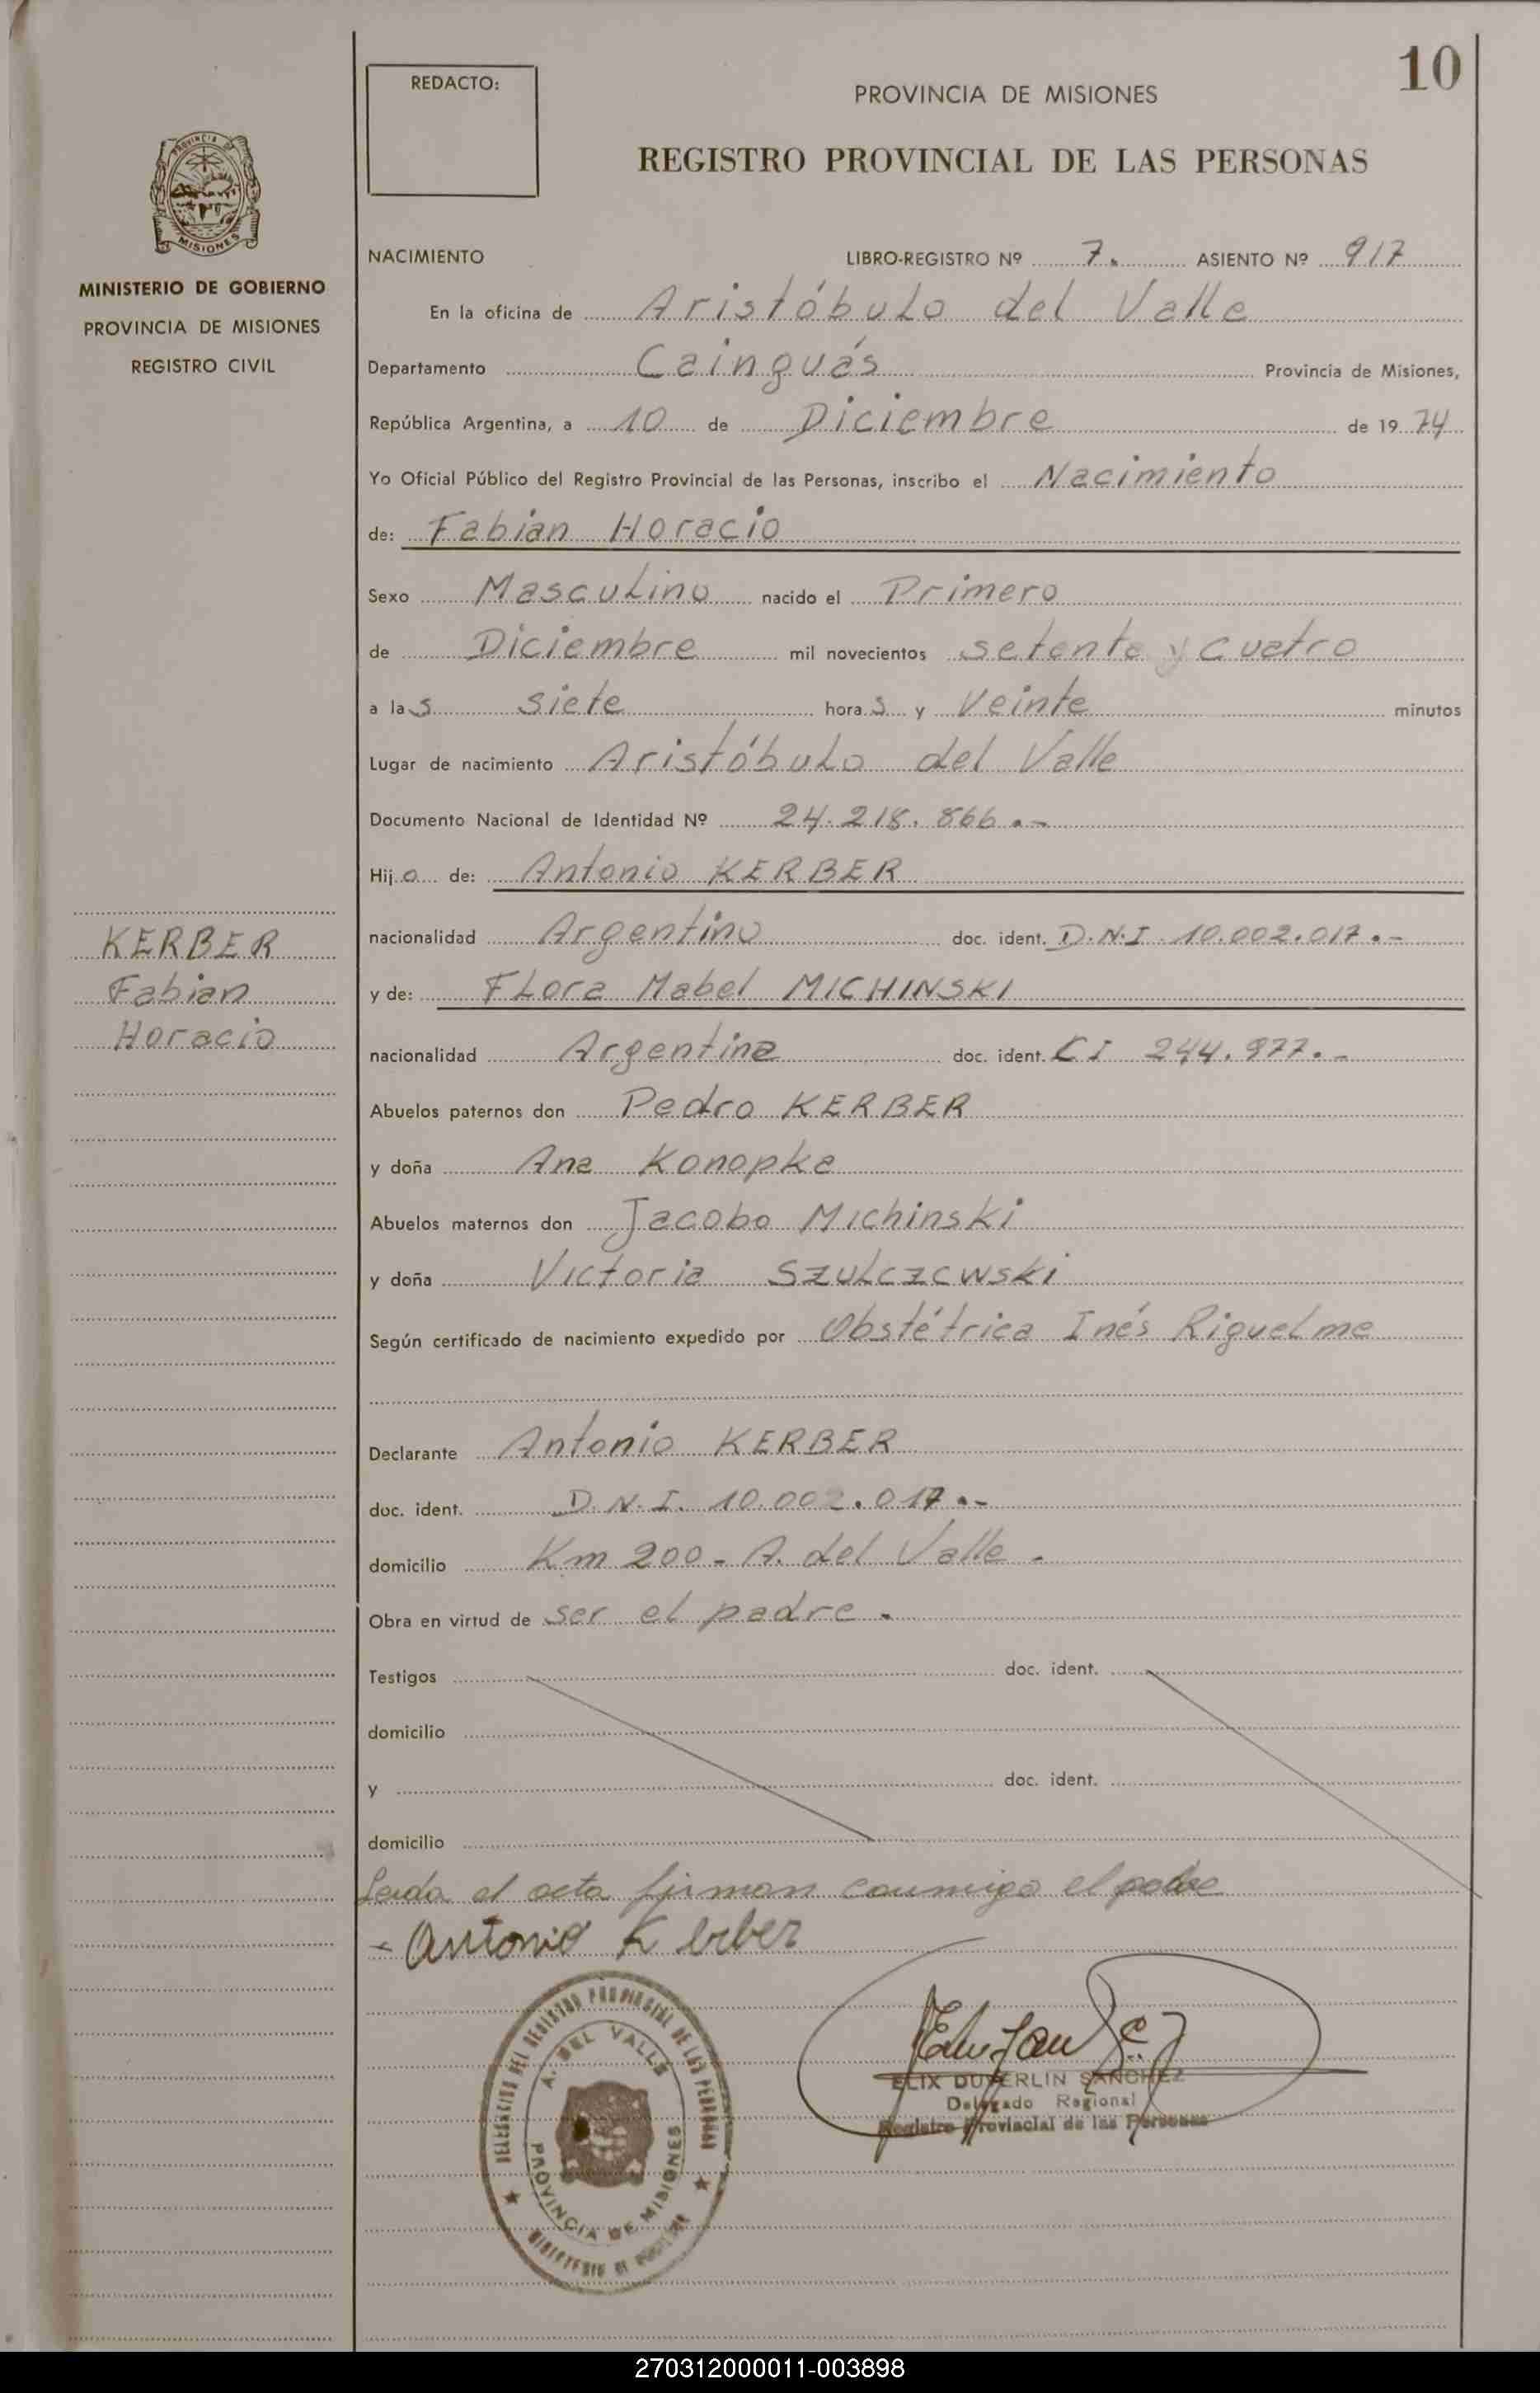 10
REDACTO:
PROVINCIA DE MISIONES
REGISTRO PROVINCIAL DE LAS PERSONAS
PROVINCIA DE
MISIONES
MINISTERIO DE GOBIERNO
PROVINCIA DE MISIONES
REGISTRO CIVIL
NACIMIENTO LIBRO-REGISTRO Nº 7. ASIENTO Nº 917
En la oficina de Aristóbulo del Valle
Departamento Cainguás Provincia de Misiones,
República Argentina, a 10 de Diciembre de 1974
Yo Oficial Público del Registro Provincial de las Personas, inscribo el Nacimiento
de: Fabian Horacio
Sexo Masculino nacido el Primero
de Diciembre mil novecientos setenta y cuatro
a las siete horas y Veinte minutos
Lugar de nacimiento Aristóbulo del Valle
Documento Nacional de Identidad Nº 24.218.866.-
Hijo de: Antonio KERBER
KERBER
Fabian
Horacio
nacionalidad Argentino doc. ident. D.N.I. 10.002.017.-
y de: Flora Mabel MICHINSKI
nacionalidad Argentina doc. ident. CI 244.977.-
Abuelos paternos don Pedro KERBER
y doña Ana Konopka
Abuelos maternos don Jacobo Michinski
y doña Victoria Szulczewski
Según certificado de nacimiento expedido por Obstétrica Inés Riquelme
Declarante Antonio KERBER
doc. ident. D.N.I. 10.002.017.-
domicilio Km 200 - A. del Valle.
Obra en virtud de ser el padre.
Testigos doc. ident.
domicilio
y doc. ident.
domicilio
Leida el acta firman conmigo el padre
- Antonio Kerber
DELEGACION DEL REGISTRO PROVINCIAL DE LAS PERSONAS
A. DEL VALLE
PROVINCIA DE MISIONES
MINISTERIO DE GOBIERNO
ELIX DUVERLIN SANCHEZ
Delegado Regional
Registro Provincial de las Personas
270312000011-003898